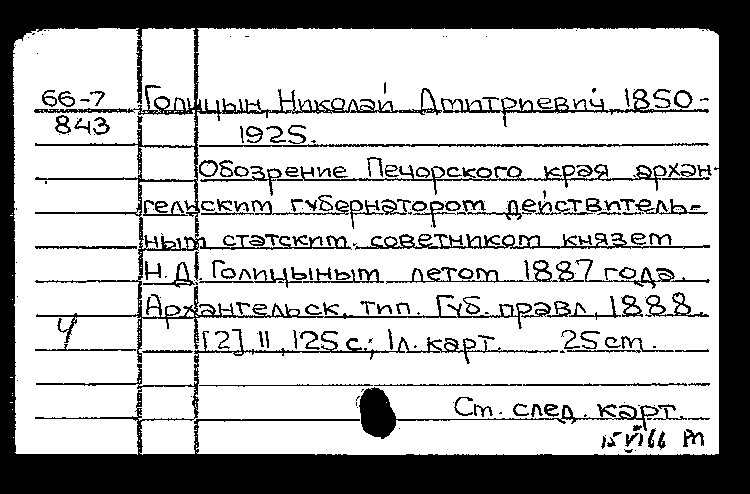 66-7 Голицын, Николай Дмитриевич, 1850-
843 1925.
Обозрение Печорского края архан-
гельским губернатором действитель-
ным статским советником князем
Н.Д. Голицыным летом 1887 года.
Архангельск, тип. Губ. правл., 1888.
[2], II, 125 с.; 1 л. карт. 25 см.
Ч
См. след. карт.
15 VI 66 М